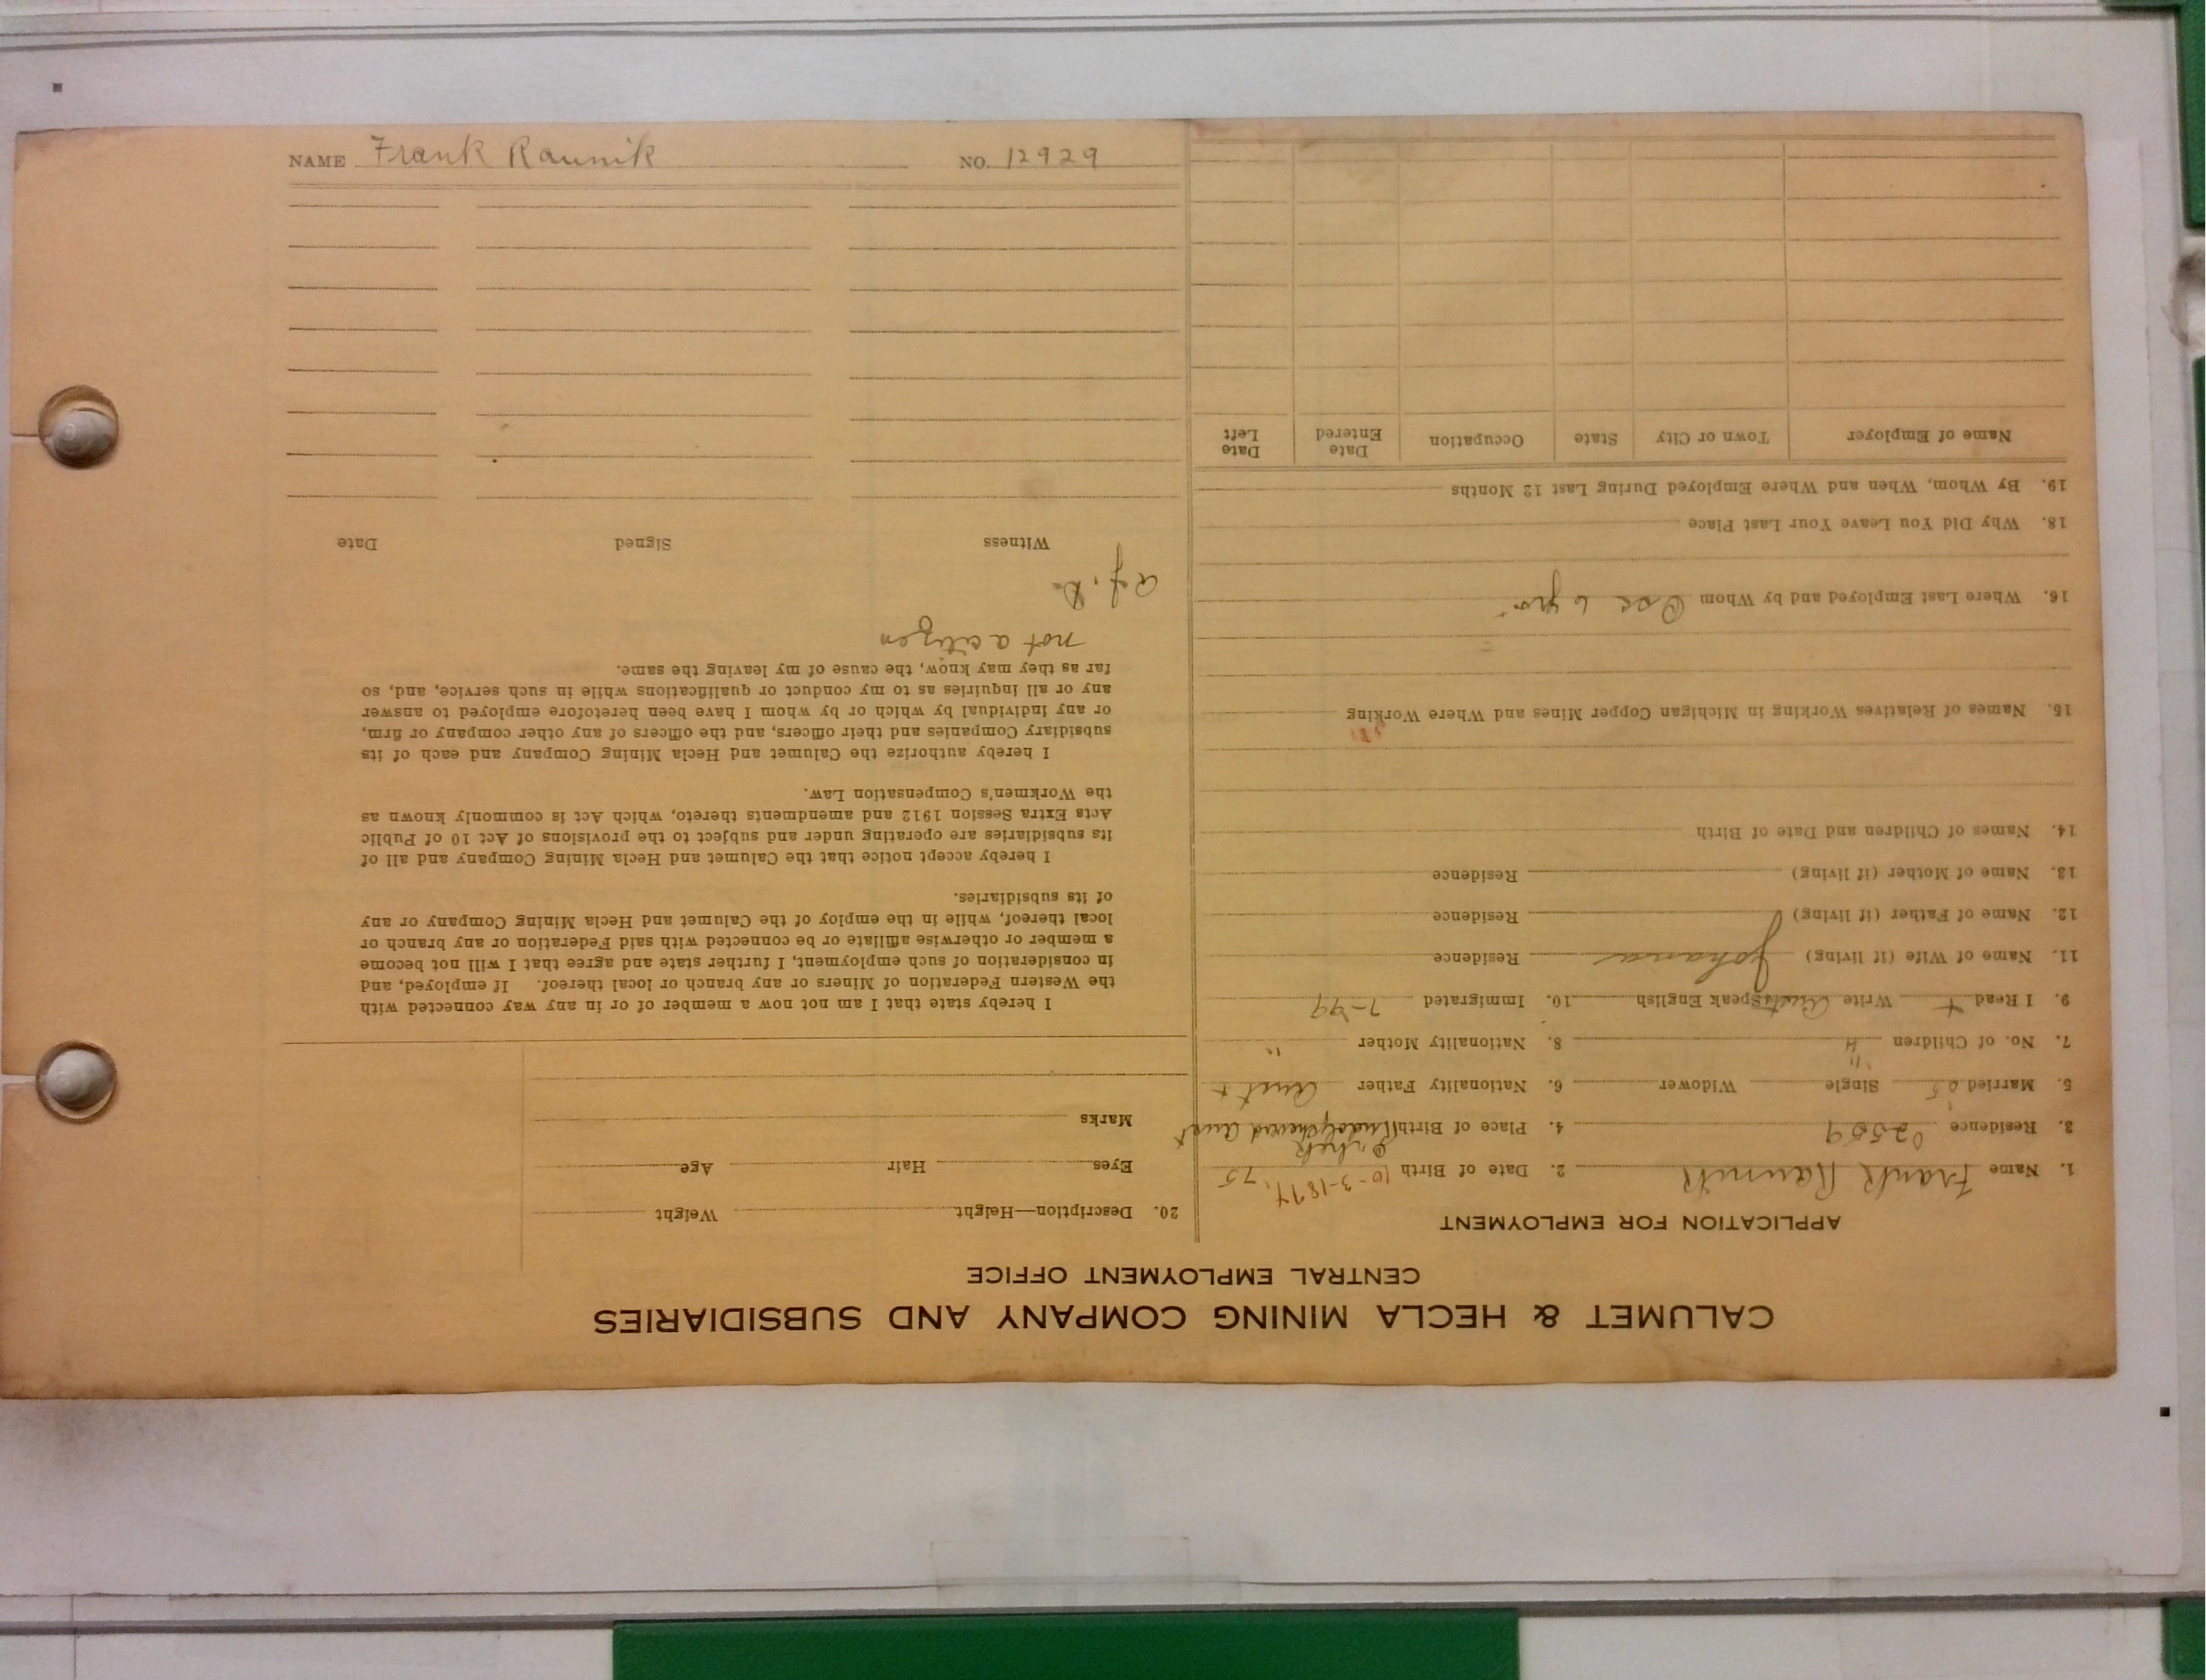 NAME Frank Raunik NO. 12929
CALUMET & HECLA MINING COMPANY AND SUBSIDIARIES
CENTRAL EMPLOYMENT OFFICE
APPLICATION FOR EMPLOYMENT
1. Name Frank Raunik 2. Date of Birth 10-3-1874 75
3. Residence 02559 4. Place of Birth Aust
5. Married 05 Single Widower 6. Nationality Father Aust +
7. No. of Children 4 8. Nationality Mother "
9. I Read + Write Aust Speak English 10. Immigrated 7-99
11. Name of Wife (if living) Johana Residence
12. Name of Father (if living) Residence
13. Name of Mother (if living) Residence
14. Names of Children and Date of Birth
15. Names of Relatives Working in Michigan Copper Mines and Where Working
16. Where Last Employed and by Whom Osc 6 yrs
18. Why Did You Leave Your Last Place
19. By Whom, When and Where Employed During Last 12 Months
Name of Employer Town or City State Occupation Date Entered Date Left
20. Description—Height Weight
Eyes Hair Age
Marks
I hereby state that I am not now a member of or in any way connected with
the Western Federation of Miners or any branch or local thereof. If employed, and
in consideration of such employment, I further state and agree that I will not become
a member or otherwise affiliate or be connected with said Federation or any branch or
local thereof, while in the employ of the Calumet and Hecla Mining Company or any
of its subsidiaries.
I hereby accept notice that the Calumet and Hecla Mining Company and all of
its subsidiaries are operating under and subject to the provisions of Act 10 of Public
Acts Extra Session 1912 and amendments thereto, which Act is commonly known as
the Workmen's Compensation Law.
I hereby authorize the Calumet and Hecla Mining Company and each of its
subsidiary Companies and their officers, and the officers of any other company or firm,
or any individual by which or by whom I have been heretofore employed to answer
any or all inquiries as to my conduct or qualifications while in such service, and, so
far as they may know, the cause of my leaving the same.
not a citizen
Witness Signed Date